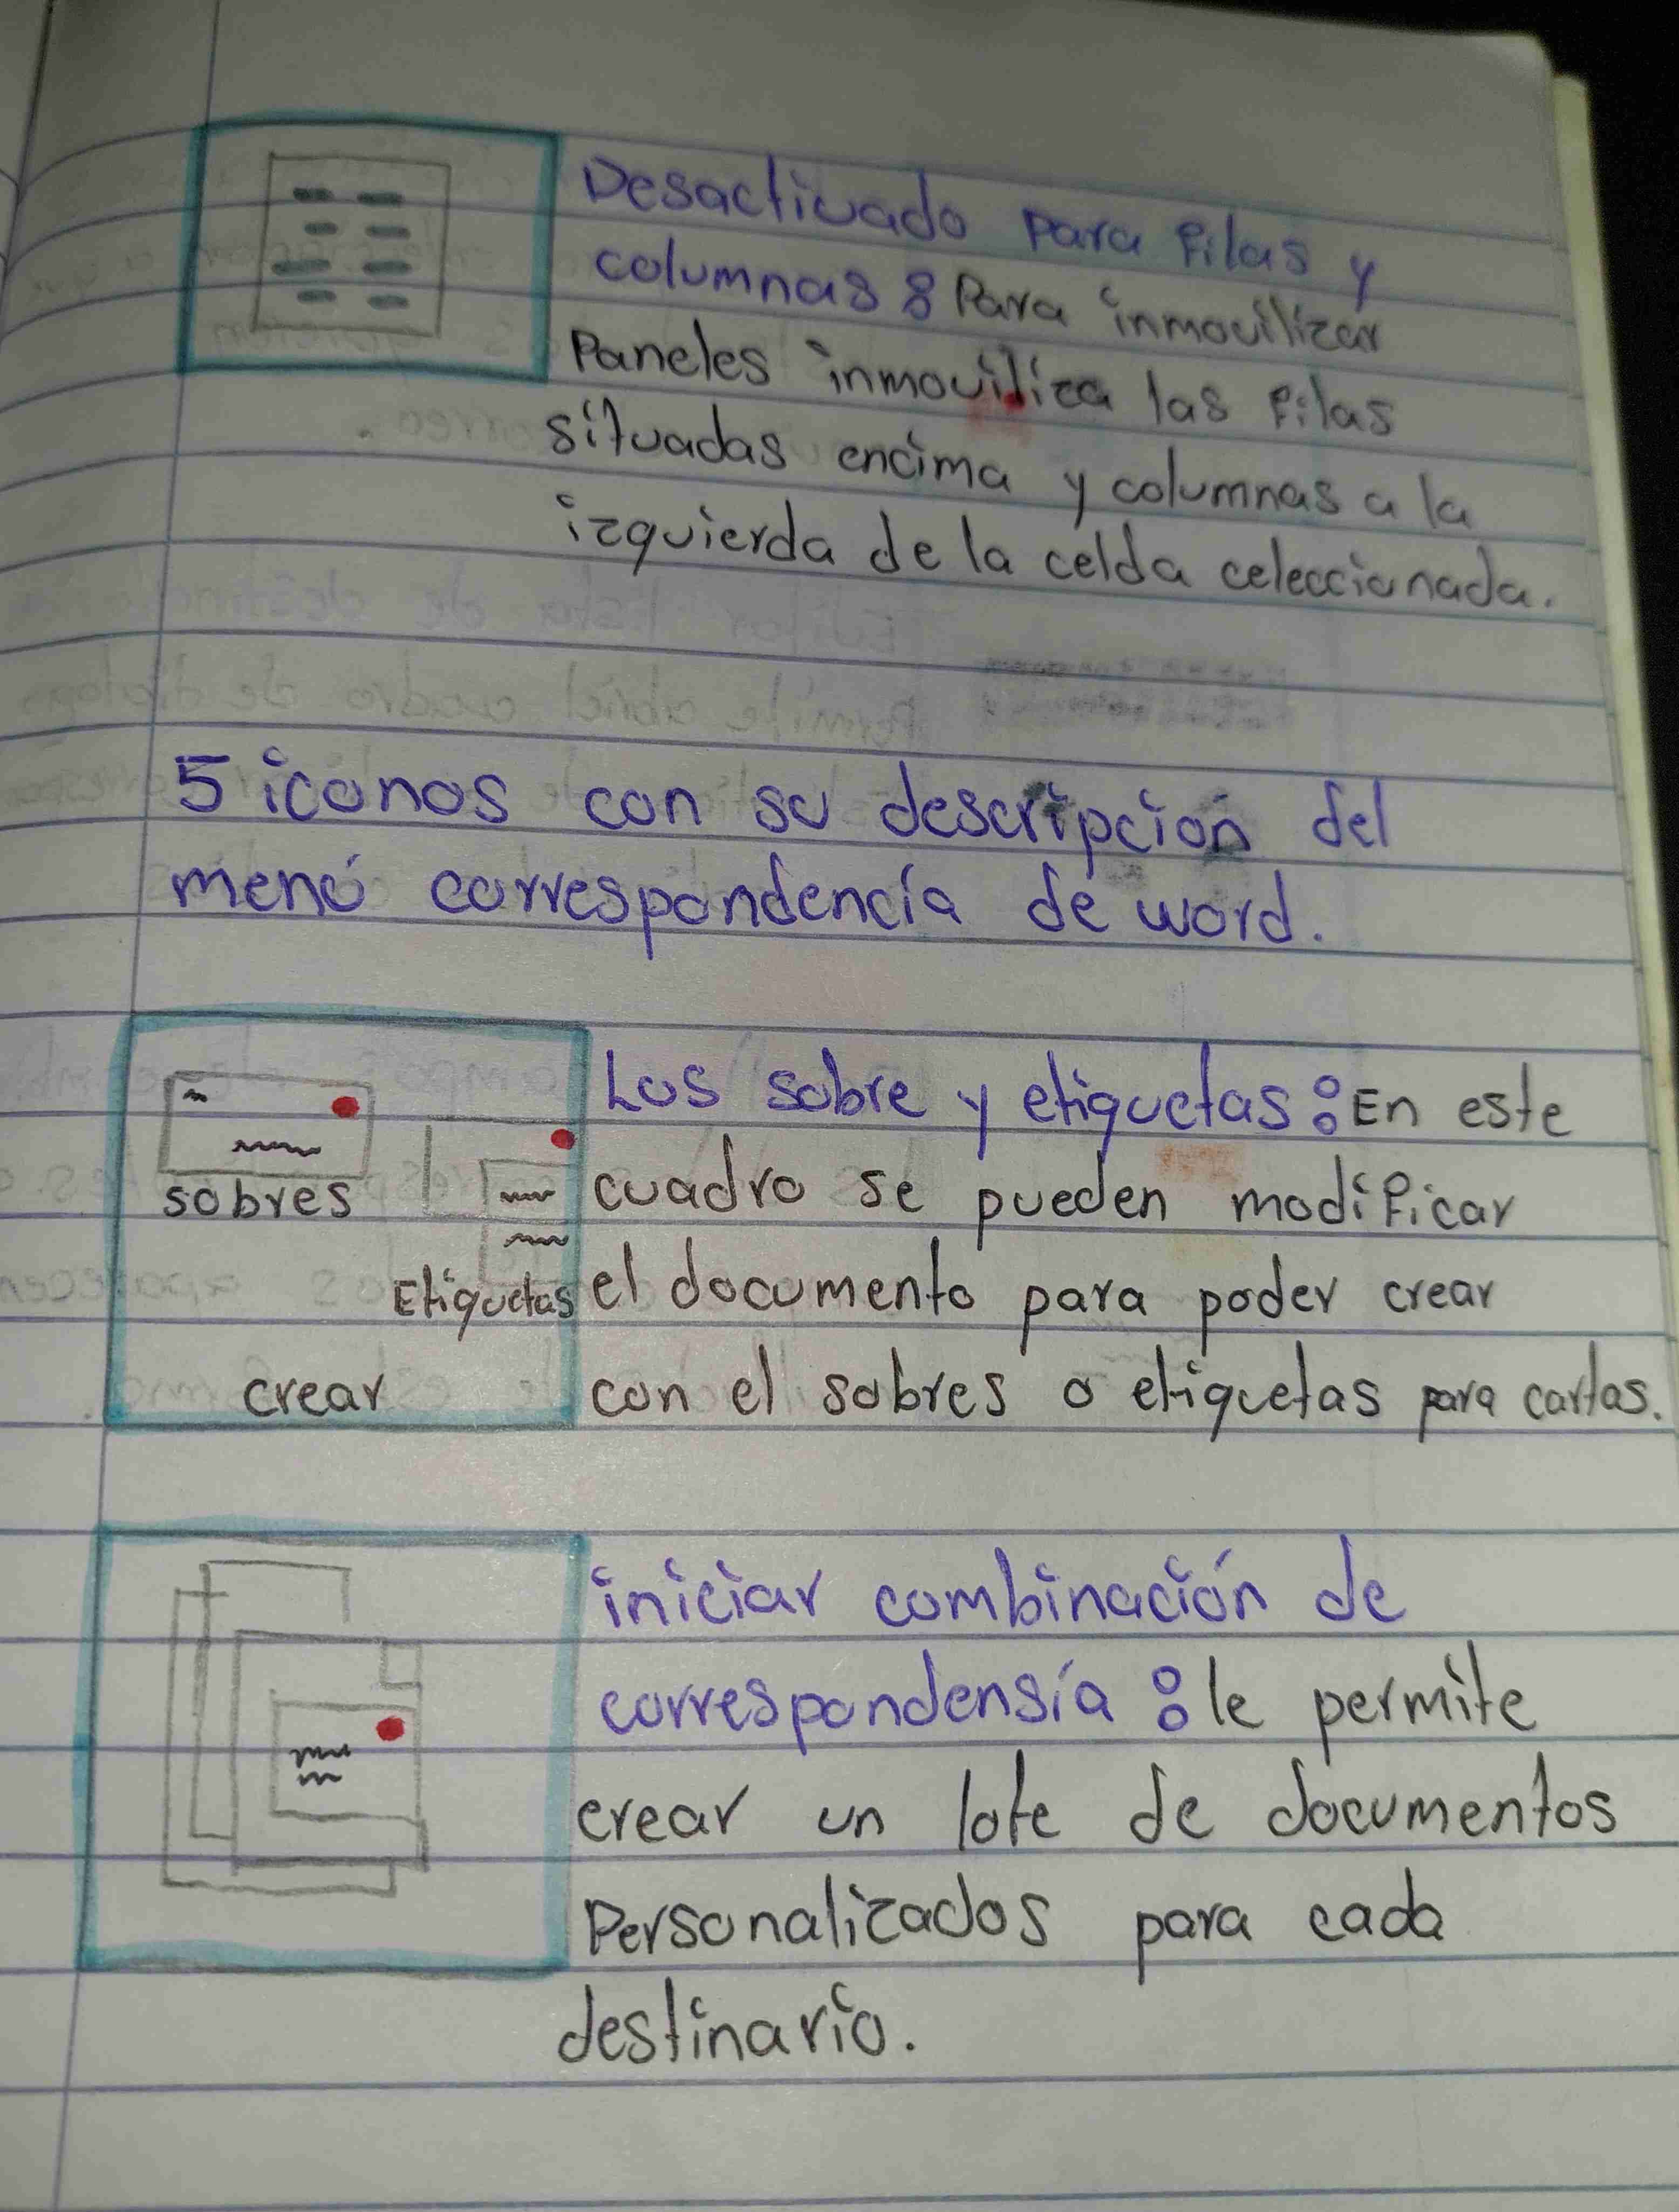 Desactivado para filas y
columnas: Para inmovilizar
Paneles inmoviliza las filas
situadas encima y columnas a la
izquierda de la celda celeccionada.
5 iconos con su descripción del
menú correspondencía de word.
Los sobre y etiquetas: En este
cuadro se pueden modificar
el documento para poder crear
con el sobres o etiquetas para cartas.
sobres
Etiquetas
crear
iniciar combinación de
correspondensía: le permite
crear un lote de documentos
Personalizados para cada
destinario.